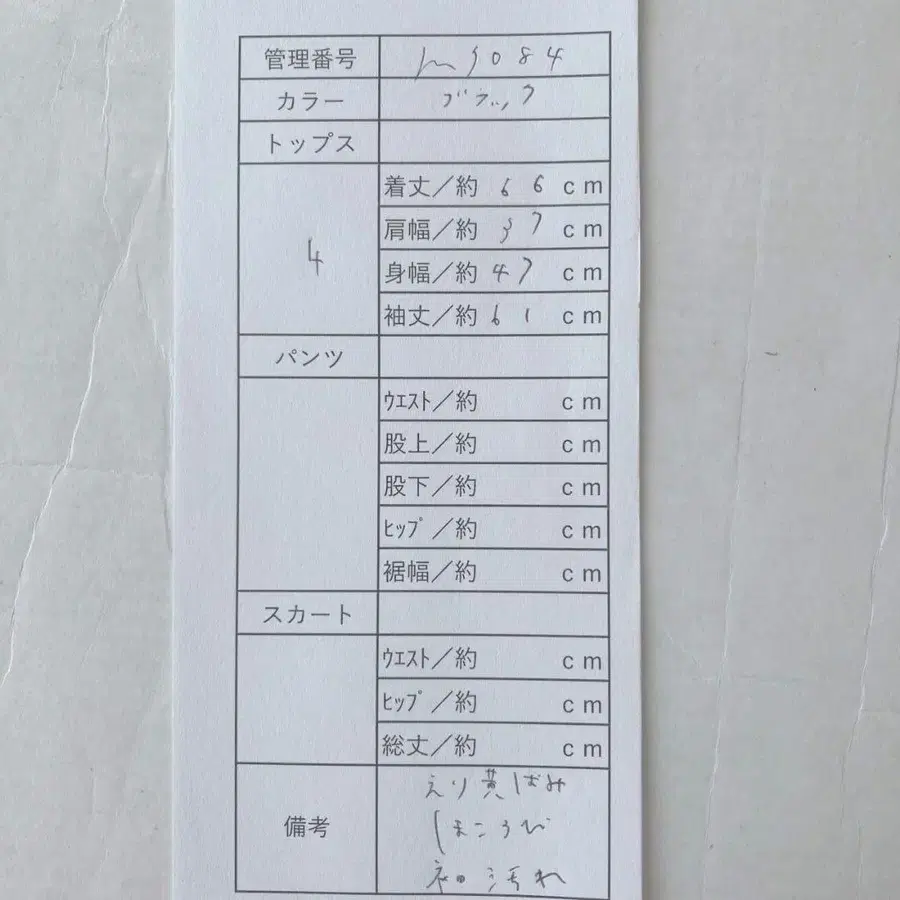 管理番号 m9084
カラー ブラック
トップス
着丈／約 66 cm
肩幅／約 37 cm
4 身幅／約 47 cm
袖丈／約 61 cm
パンツ
ｳｴｽﾄ／約 cm
股上／約 cm
股下／約 cm
ﾋｯﾌﾟ／約 cm
裾幅／約 cm
スカート
ｳｴｽﾄ／約 cm
ﾋｯﾌﾟ／約 cm
総丈／約 cm
えり黄ばみ
備考 ほころび
袖汚れ